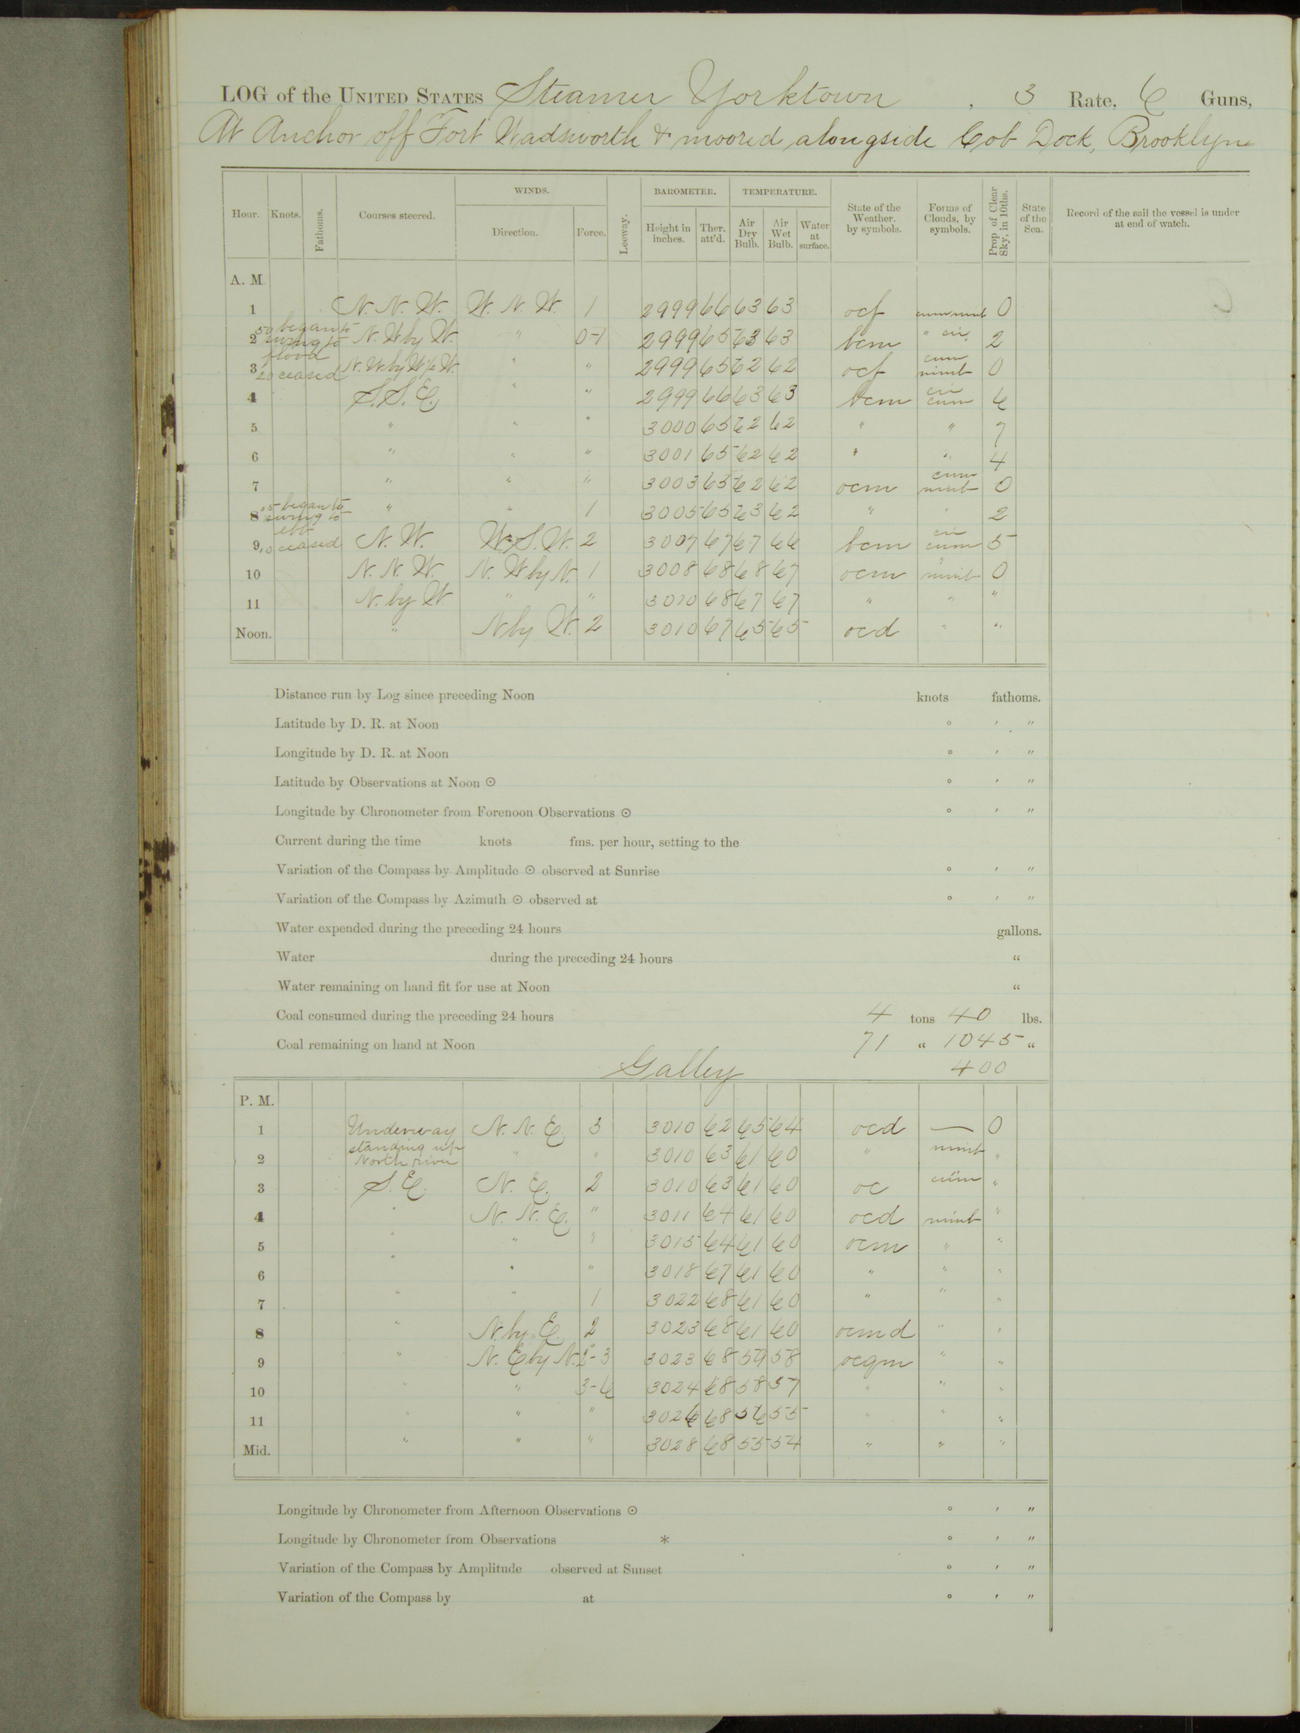 LOG of the UNITED STATES Steamer Yorktown , 3 Rate, 6 Guns,
At Anchor off Fort Wadsworth & moored alongside Cob Dock, Brooklyn
WINDS. BAROMETER. TEMPERATURE.
Hour. Knots. Fathoms. Courses steered. Direction. Force. Leeway. Height in inches. Ther. att'd. Air Dry Bulb. Air Wet Bulb. Water at surface. State of the Weather. by symbols. Forms of Clouds, by symbols. Prop of Clear Sky, in 10ths. State of the Sea. Record of the sail the vessel is under at end of watch.
A. M.
1 N.N.W. W.N.W. 1 2999 66 63 63 ocf cum nimb 0
50 began to swing to flood
2 N.W by W. " 0-1 2999 65 63 63 bcm " cir. 2
3 20 ceased N.W. by W ½ W. " " 2999 65 62 62 ocf cum nimb 0
4 S.S.E. " " 2999 66 63 63 bcm cir cum 6
5 " " " 3000 65 62 62 " " 7
6 " " " 3001 65 62 62 " " 4
7 " " " 3003 65 62 62 ocm cum nimb 0
.5 began to swing to ebb
8 " " 1 3005 65 63 62 " " 2
9 ceased N.W. W.S.W. 2 3007 67 67 66 bcm cir cum 5
10 N.N.W. N.W by N. 1 3008 68 68 67 ocm " nimb 0
11 N. by W " " 3010 68 67 67 " " "
Noon. " N by W. 2 3010 67 65 65 ocd " "
Distance run by Log since preceding Noon knots fathoms.
Latitude by D. R. at Noon ° ′ ″
Longitude by D. R. at Noon ° ′ ″
Latitude by Observations at Noon ⊙ ° ′ ″
Longitude by Chronometer from Forenoon Observations ⊙ ° ′ ″
Current during the time knots fms. per hour, setting to the
Variation of the Compass by Amplitude ⊙ observed at Sunrise ° ′ ″
Variation of the Compass by Azimuth ⊙ observed at ° ′ ″
Water expended during the preceding 24 hours gallons.
Water during the preceding 24 hours “
Water remaining on hand fit for use at Noon “
Coal consumed during the preceding 24 hours 4 tons 40 lbs.
Coal remaining on hand at Noon 71 “ 1045 “
Galley 400
P. M.
1 Underway N.N.E. 3 3010 62 65 64 ocd — 0
standing up
2 North river " " 3010 63 61 60 " nimb "
3 S.E. N.E. 2 3010 63 61 60 oc cum "
4 " N.N.E. " 3011 64 61 60 ocd nimb "
5 " " " 3015 64 61 60 ocm " "
6 " " " 3018 67 61 60 " " "
7 " " 1 3022 68 61 60 " " "
8 " N. by E. 2 3023 68 61 60 ocmd " "
9 " N.E by N. 2-3 3023 68 59 58 ocqm " "
10 " " 3-6 3024 68 58 57 " " "
11 " " " 3026 68 56 55 " " "
Mid. " " " 3028 68 55 54 " " "
Longitude by Chronometer from Afternoon Observations ⊙ ° ′ ″
Longitude by Chronometer from Observations * ° ′ ″
Variation of the Compass by Amplitude observed at Sunset ° ′ ″
Variation of the Compass by at ° ′ ″